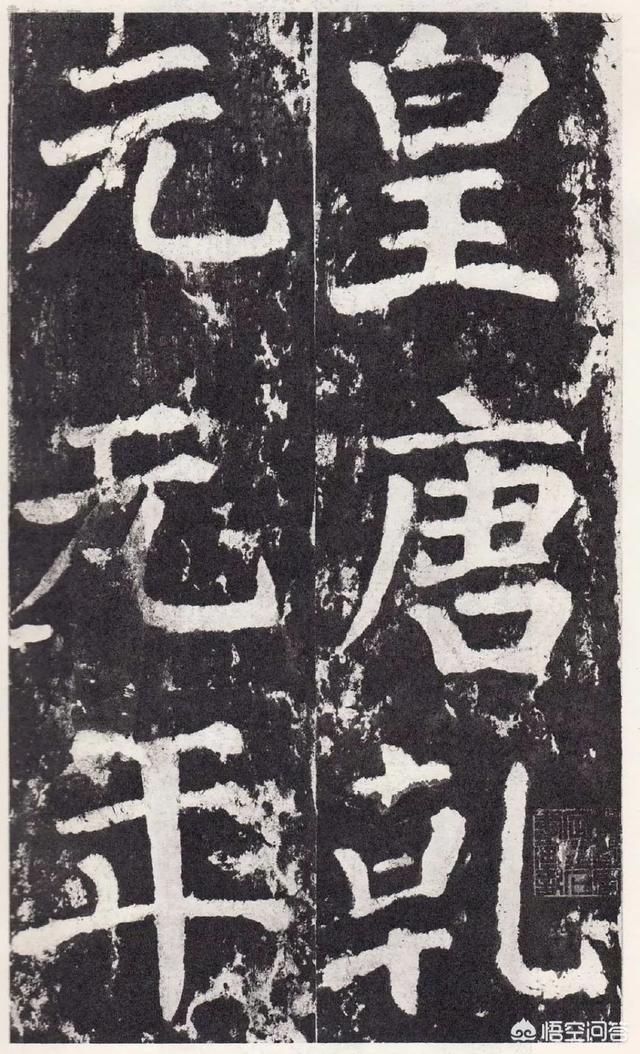 皇唐乾
元元年
悟空问答